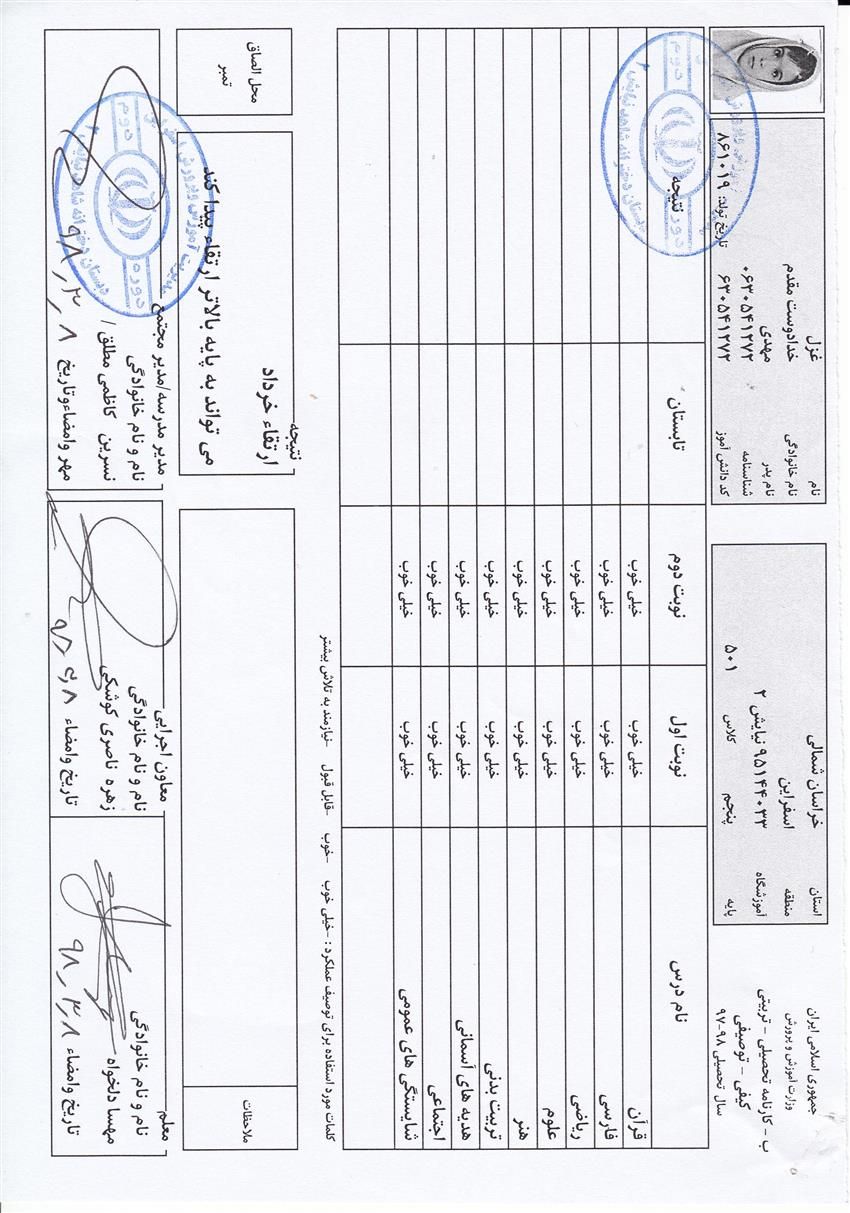 جمهوری اسلامی ایران
وزارت آموزش و پرورش
ب - کارنامه تحصیلی - تربیتی
کیفی - توصیفی
سال تحصیلی ۹۸-۹۷
استان خراسان شمالی
منطقه اسفراین
آموزشگاه ۹۵۱۴۴۰۳۳ نیایش ۲
پایه پنجم کلاس ۵۰۱
نام غزل
نام خانوادگی خدادوست مقدم
نام پدر مهدی
شناسنامه ۰۶۳۰۵۴۱۲۷۲
کد دانش آموز ۶۳۰۵۴۱۲۷۲ تاریخ تولد: ۸۶۱۰۱۹
نام درس نوبت اول نوبت دوم تابستان نتیجه
قرآن خیلی خوب خیلی خوب
فارسی خیلی خوب خیلی خوب
ریاضی خیلی خوب خیلی خوب
علوم خیلی خوب خیلی خوب
هنر خیلی خوب خیلی خوب
تربیت بدنی خیلی خوب خیلی خوب
هدیه های آسمانی خیلی خوب خیلی خوب
اجتماعی خیلی خوب خیلی خوب
شایستگی های عمومی خیلی خوب خیلی خوب
کلمات مورد استفاده برای توصیف عملکرد : -خیلی خوب -خوب -قابل قبول -نیازمند به تلاش بیشتر
ملاحظات
نتیجه
ارتقاء خرداد
می تواند به پایه بالاتر ارتقاء پیدا کند
محل الصاق
تمبر
معلم
نام و نام خانوادگی
مهسا دلخواه
تاریخ وامضاء ۹۸٫۳٫۸
معاون اجرایی
نام و نام خانوادگی
زهره ناصری کوشکی
تاریخ وامضاء
مدیر مدرسه/مدیر مجتمع
نام و نام خانوادگی
نسرین کاظمی مطلق /
مهر وامضاءوتاریخ ۹۸٫۳٫۸
دوره
دوم
دوره
دوم